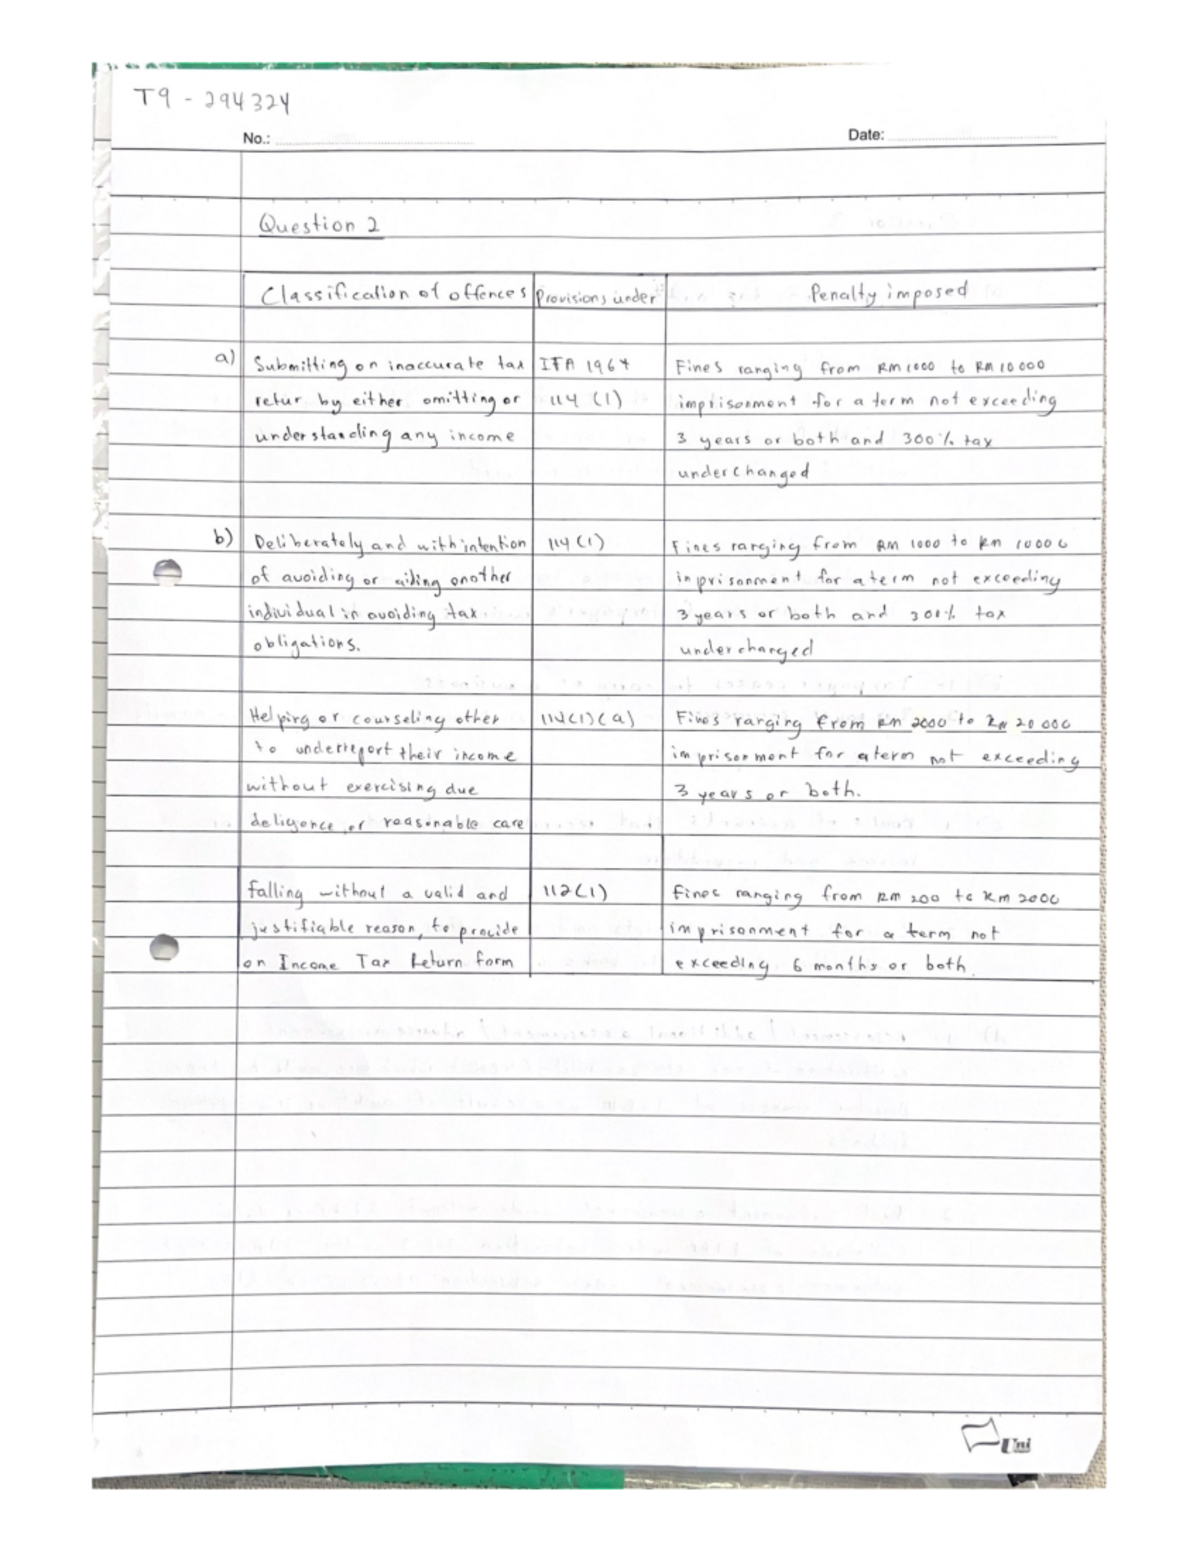 T9 - 294324
No.: Date:
Question 2
Classification of offences Provisions under Penalty imposed
a) Submitting on inaccurate tax ITA 1967 Fines ranging from RM 1000 to RM 10 000
retur by either omitting or 114 (1) imprisonment for a term not exceeding
understanding any income 3 years or both and 300% tax
underchanged
b) Deliberately and with intention 114 (1) Fines ranging from RM 1000 to RM 10000
of avoiding or aiding another imprisonment for a term not exceeding
individual in avoiding tax 3 years or both and 300% tax
obligations. undercharged
Helping or counseling other 114(1)(a) Fines ranging from RM 2000 to RM 20 000
to underreport their income imprisonment for a term not exceeding
without exercising due 3 years or both.
deligence or reasonable care
falling without a valid and 112(1) Fines ranging from RM 200 to RM 2000
justifiable reason, to provide imprisonment for a term not
on Income Tax Return form exceeding 6 months or both.
Uni